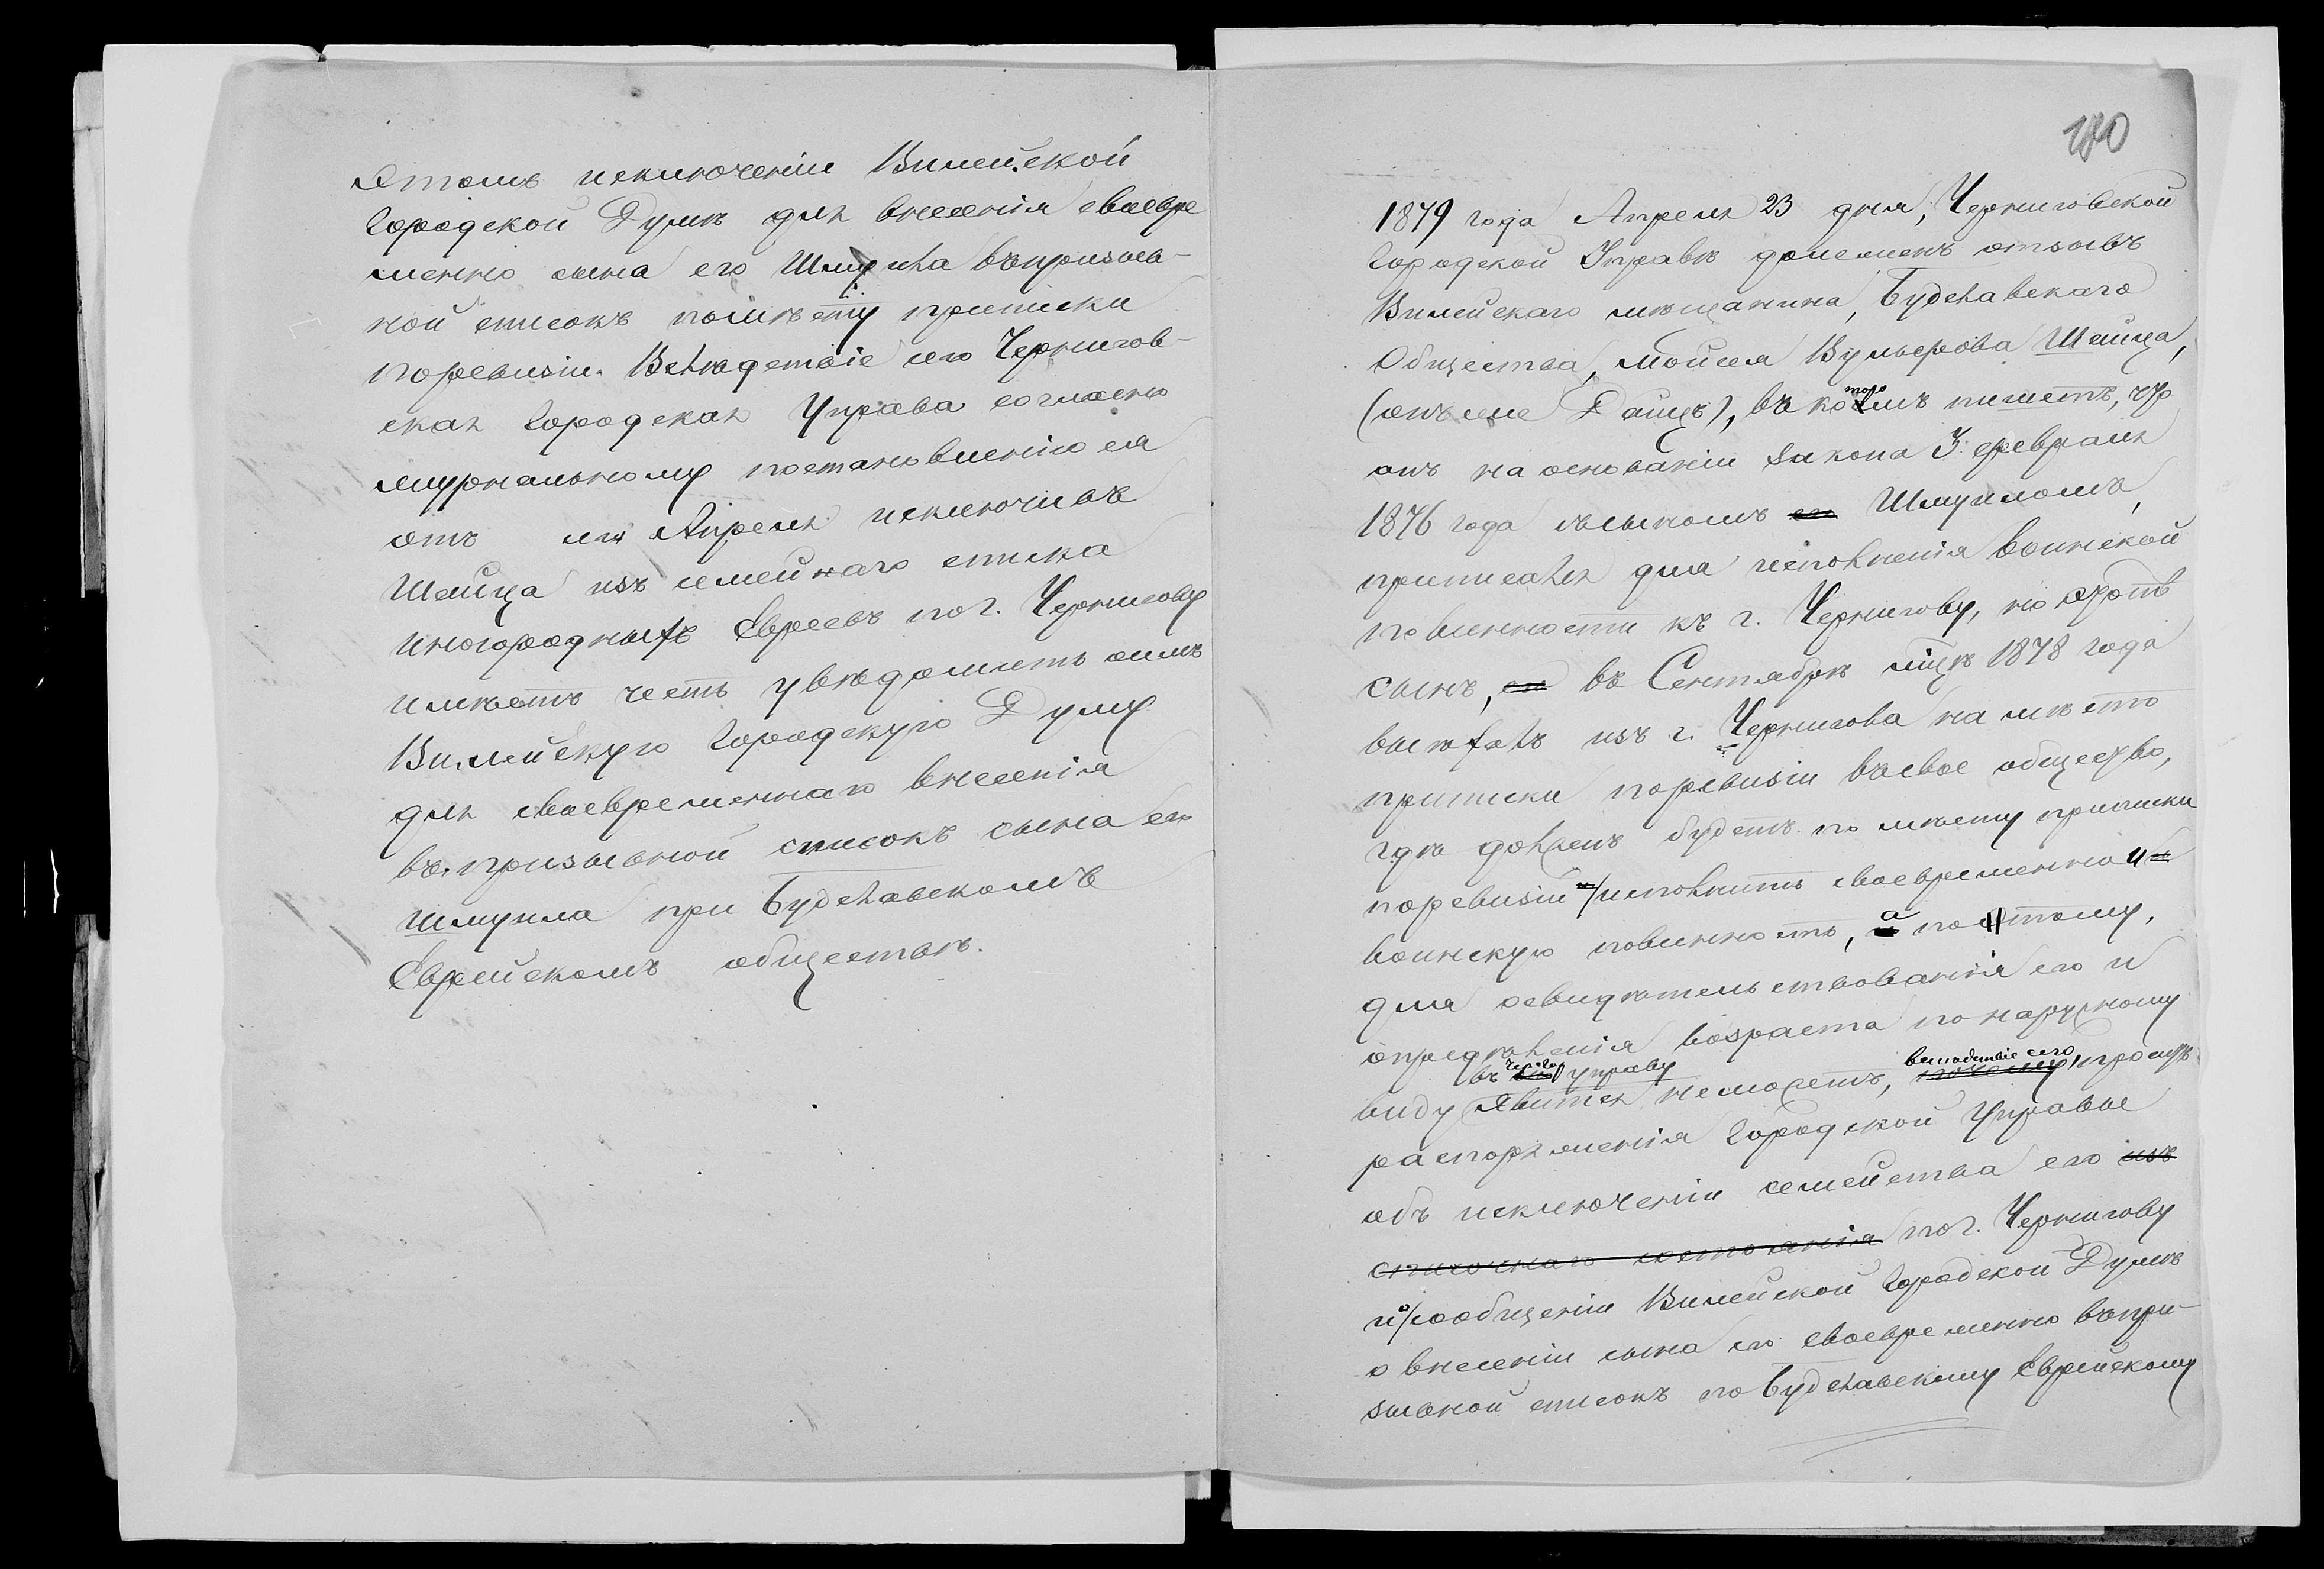 О томъ исключеніи Вилейской
Городской Думѣ для внесенія своевре
менно сына его Шмуила въ призыв-
ной списокъ по мѣсту приписки
по ревизіи. Вслѣдствіе сего Чернигов-
ская Городская Управа согласно
журнальному постановленію ея
отъ сего Апрѣля исключивъ
Шайца изъ семейнаго списка
иногородныхъ Евреевъ по г. Чернигову
имѣетъ честь увѣдомить симъ
Вилейскую Городскую Думу
для своевременнаго внесенія
въ призывной списокъ сына его
Шмуила при Будславскомъ
Еврейскомъ обществѣ.
180
1879 года Апрѣля 23 дня, Черниговской
Городской Управѣ доложенъ отзывъ
Вилейскаго мѣщанина, Будславскаго
Общества, Мойсея Вульфова Шайца,
(онъ же Дайцъ), въ которомъ пишетъ, что
онъ на основаніи закона 3 февраля
1876 года съ сыномъ его Шмуиломъ,
приписался для исполненія воинской
повинности къ г. Чернигову, но этотъ
сынъ, въ Сентябрѣ мцѣ 1878 года
выѣхалъ изъ г. Чернигова на мѣсто
приписки по ревизіи въ свое общество,
гдѣ долженъ будетъ по мѣсту приписки
по ревизіи и исполнить своевременно и
воинскую повинность, а потому,
для освидѣтельствованія его и
опредѣленія возраста по наружному
въ Управу вслѣдствіе сего
виду явится не можетъ, почему, проситъ
распоряженія Городской Управы
объ исключеніи семейства его изъ
списочнаго состоянія по г. Чернигову
и о сообщеніи Вилейской Городской Думѣ
о внесеніи сына его своевременно въ при-
зывной списокъ по Будславскому Еврейскому